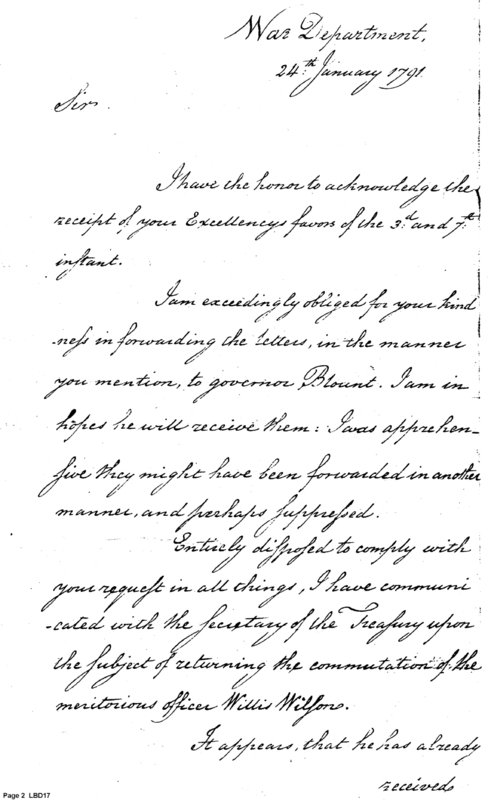 War Department,
24.th January 1791.
Sir.
I have the honor to acknowledge the
receipt of your Excellencys favors of the 3.d and 7.th
instant.
I am exceedingly obliged for your kind
-ness in forwarding the letters, in the manner
you mention, to governor Blount. I am in
hopes he will receive them: I was apprehen-
sive they might have been forwarded in another
manner, and perhaps suppressed.
Entirely disposed to comply with
your request in all things, I have communi
-cated with the Secretary of the Treasury upon
the subject of returning the commutation of the
meritorious officer Willis Wilson.
It appears, that he has already
received
Page 2 LBD17